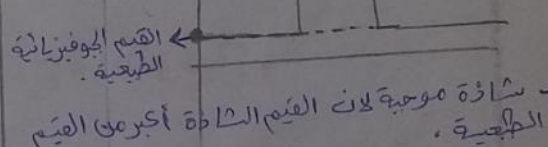 القيم الجوفيزيائية
الطبيعية .
- شاذة موجبة لان القيم الشاذة أكبر من القيم
الطبيعية .